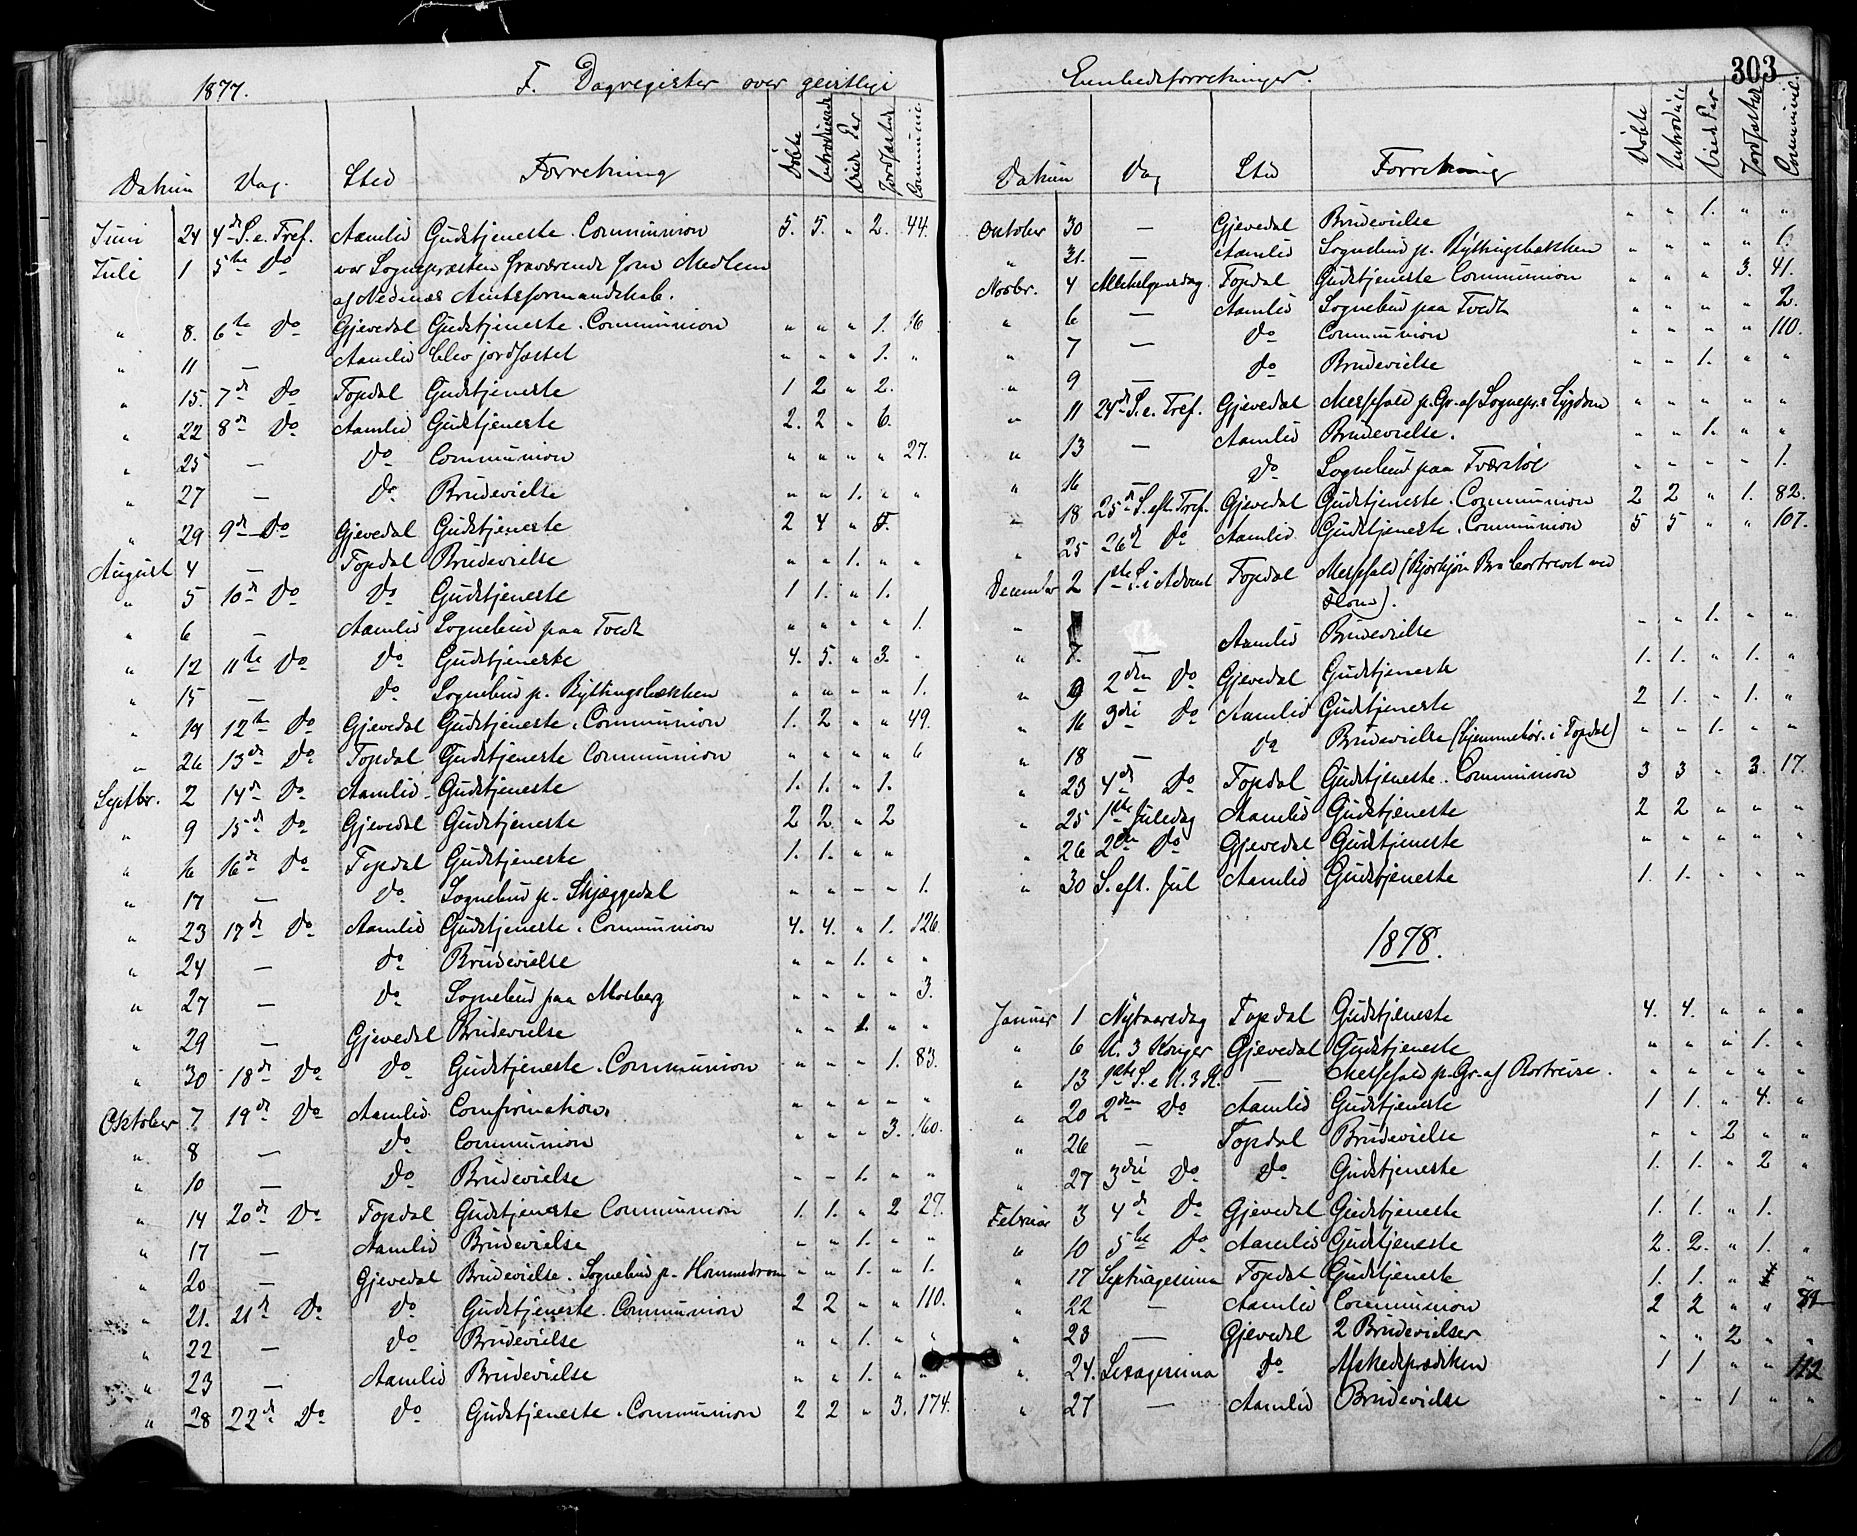 1877. F. Dagregister over geistlige
Datum Dag. Sted Forretning Döbte Introducerede Viede Par Jordfæstede Communic.
Juni 24 4de S. e. Tref. Aamlid Gudstjeneste. Communion 5. 5. " 2. 44.
Juli 1 5te Do var Sognepræsten fraværende som Medlem
af Nedenæs Amtsformandskab.
" 8. 6te Do Gjevedal Gudstjeneste. Communion " " " 1. 16
" 11 — Aamlid blev jordfæstet " " " 1. "
" 15. 7de Do Topdal Gudstjeneste 1 2 " 2.
" 22 8de Do Aamlid Gudstjeneste 2. 2 " 6.
" 25 — Do Communion " " " " 27.
" 27 — Do Brudevielse " " 1. " "
" 29 9de Do Gjevedal Gudstjeneste 2 4 "
August 4 — Topdal Brudevielse " " 1. " "
" 5 10de Do Do Gudstjeneste 1 1. " 1.
" 6 — Aamlid Sognebud paa Tvedt " " " " 1.
" 12 11te Do Do Gudstjeneste 4. 5. " 3. "
" 15 — Do Sognebud p. Byttingsbækken " " " " 1.
" 19 12te Do Gjevedal Gudstjeneste. Communion 1. 2 " " 49.
" 26 13de Do Topdal Gudstjeneste Communion " " " " 6
Septbr. 2 14de Do Aamlid Gudstjeneste 1. 1. " 1.
" 9 15de Do Gjevedal Gudstjeneste 2 2 " 2
" 16 16de Do Topdal Gudstjeneste 1. 1. " "
" 17 — Do Sognebud p. Skjæggedal " " " " 1.
" 23 17de Do Aamlid Gudstjeneste. Communion 4. 4. " 1. 126.
" 24 — Do Brudevielse " " 1. " "
" 27 — Do Sognebud paa Mosberg " " " " 3.
" 29 — Gjevedal Brudevielse " " 1. " "
" 30 18de Do Do Gudstjeneste. Communion " " " 1. 83.
Oktober 7 19de Do Aamlid Confirmation. " " " " "
" 8 — Do Communion " " " 3. 160.
" 10 — Do Brudevielse " " 1. " "
" 14 20de Do Topdal Gudstjeneste Communion 1. 1. " 2 27.
" 17 — Aamlid Brudevielse " " 1. " "
" 20 — Gjevedal Brudevielse. Sognebud p. Hommedrom " " 1. " 1.
" 21. 21de Do Do Gudstjeneste. Communion 2 2 " " 110.
" 22 — Do Brudevielse " " 1. " "
" 23 — Aamlid Brudevielse " " 1. " "
" 28 22de Do Do Gudstjeneste. Communion 2 2 " 3. 174.
Embedsforretninger. 303
Datum Dag Sted Forretning Döbte Introduc. Viede Par Jordfæstede Communic.
Oktober 30 — Gjevedal Brudevielse " " 1. " "
" 31. — Aamlid Sognebud p. Byttingsbækken " " " " 1.
Novbr. 4 Allehelgensdag. Topdal Gudstjeneste Communion " " " 3. 41.
" 6 — Aamlid Sognebud paa Tvedt " " " " 2.
" 7 — Do Communion " " " " 110.
" 9 — Do Brudevielse " " 1. " "
" 11 24de S. e. Tref. Gjevedal Messefald p. Gr. af Sognepr.s Sygdom " " " " "
" 13 — Aamlid Brudevielse. " " 1. " "
" 16 — Do Sognebud paa Tværstöl " " " " 1.
" 18 25de S. eft. Tref. Gjevedal Gudstjeneste. Communion 2 2 " 1. 82.
" 25 26de Do Aamlid. Gudstjeneste. Communion 5 5 " " 107.
December 2 1ste S. i Advent Topdal Messefald (Bjorhjön Bro bortrevet ved
Flom).
" 7. — Aamlid Brudevielse " " 1. " "
" 9 2den Do Gjevedal Gudstjeneste 1. 1. " 1. "
" 16 3die Do Aamlid Gudstjeneste 2 1. " 1. "
" 18 — Do Brudevielse (hjemmehör. i Topdal) " " 1. " "
" 23 4de Do Topdal Gudstjeneste. Communion 3 3 " 3. 17.
" 25 1ste Juledag Aamlid Gudstjeneste 2 2 " " "
" 26 2den Do Gjevedal Gudstjeneste " " " " "
" 30 S. eft. Jul Aamlid Gudstjeneste 1. 1. " " "
1878.
Januar 1 Nytaarsdag Topdal Gudstjeneste 4. 4. " " "
" 6 H. 3 Konger Gjevedal Gudstjeneste " " " 1. "
" 13 1ste S. e H. 3 K. — Messefald p. Gr. af Bortreise. " " " " "
" 20 2den Do Aamlid Gudstjeneste 1 1. " 4. "
" 26 — Topdal Brudevielse " " 2 " "
" 27 3die Do Do Gudstjeneste 1. 1. " 2 "
Februar 3 4de Do Gjevedal Gudstjeneste 1. 1. " 1.
" 10 5te Do Aamlid Gudstjeneste 2. 2. " 1. "
" 17 Septuagesima Topdal Gudstjeneste 1. 1. " "
" 22 — Aamlid Communion 2 2 " "
" 23 — Gjevedal 2 Brudevielser " " 2 " "
" 24. Sexagesima Do Afskedsprædiken 1 1 " " 112
" 27 — Aamlid Brudevielse " " 1 " "